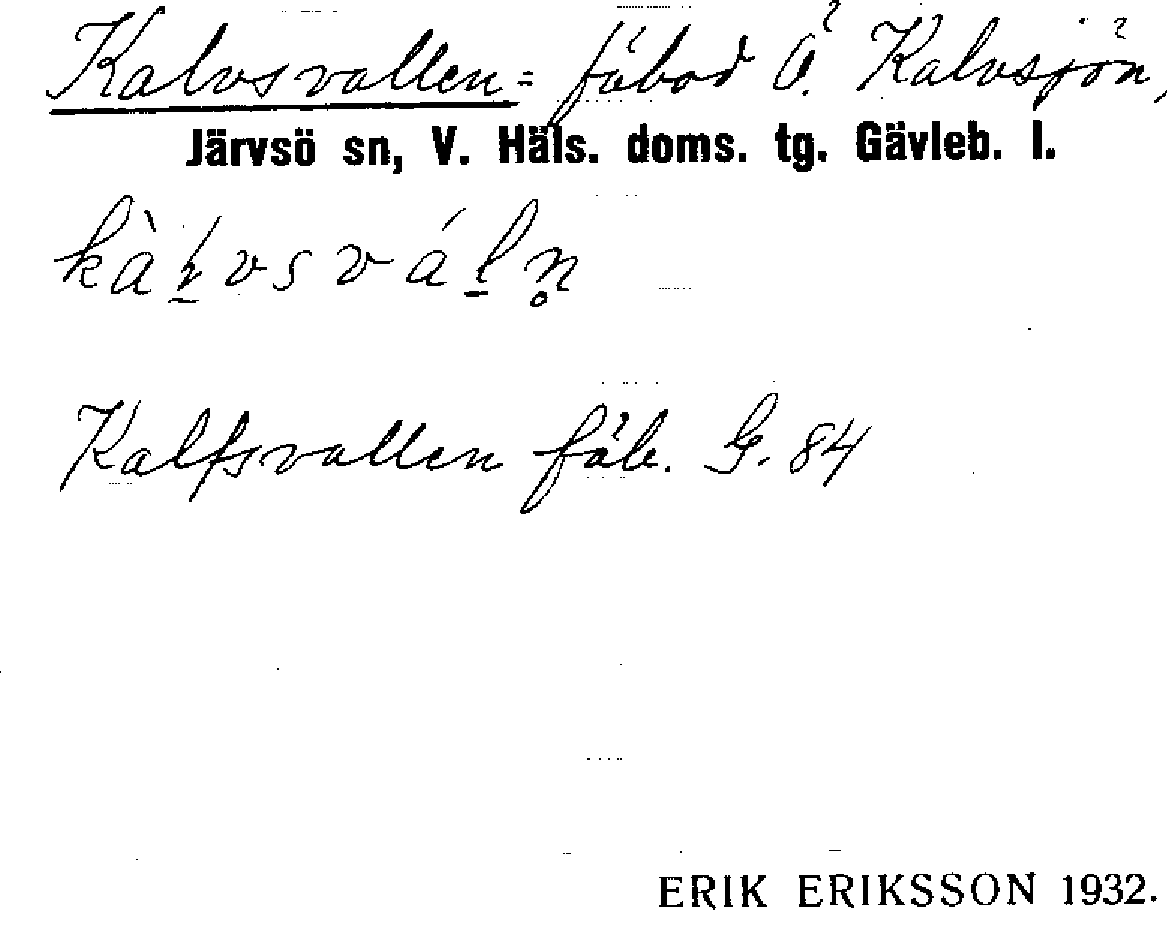 Kalvsvallen = fäbod Ö. Kalvsjön,
Järvsö sn, V. Häls. doms. tg. Gävleb. l.
Kalfsvallen fäb. G. 84
ERIK ERIKSSON 1932.